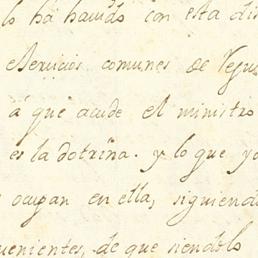 lo ha hauido con esta dis
seruicios comunes de Jesus
á que acude el ministro
es la dotrina. y lo que yo
ocupan en ella, siguiend
uenientes, de que siendolo